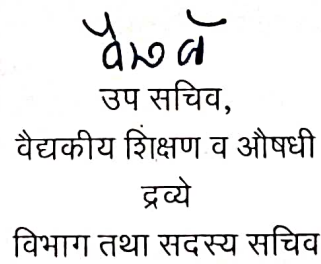 उप सचिव,
वैद्यकीय शिंक्षण व औषधी
द्रव्ये
विभाग तथा सदस्य सचिव